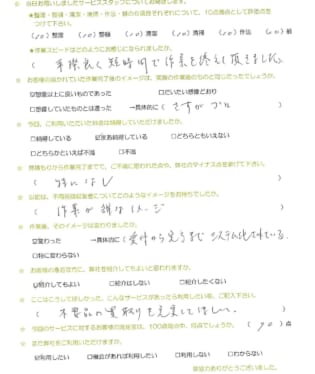 ※ 当日お伺いしましたサービススタッフについてお聞きします。
★整理・整頓・清潔・清掃・作法・躾の6項目それぞれについて、10点満点として評価点をつけて下さい。
(10)整理 (10)整頓 (10)清潔 (10)清掃 (10)作法 (10)躾
★作業スピードはどのようにお感じになられましたか。
( 手際良く短時間で作業を終えて頂きました。 )
※ お客様の描かれていた作業完了後のイメージは、実際の作業後のものと同じだったでしょうか。
☑想像以上に良いものであった □だいたい想像どおり
□想像していたものとは違った →具体的に( さすがプロ )
※ 今回、ご利用いただいた料金は納得していただけましたか。
□納得している ☑まあ納得している □どちらともいえない
□どちらかといえば不満 □不満
※ 見積もりから作業完了までで、ご不満に思われた点や、弊社のマイナス点を挙げて下さい。
( 特になし )
※ 以前は、不用品回収業者についてどのようなイメージをお持ちでしたか。
( 作業が雑なイメージ )
※ 作業後、そのイメージは変わりましたか。
☑変わった →具体的に( 受付から完了までシステム化されている。 )
□特に変わらない
※ お客様の身近な方に、弊社を紹介してもよいと思われますか。
☑紹介してもよい □紹介はしない □紹介したくない
※ ここはこうしてほしかった、こんなサービスがあったら利用したい等、ご記入下さい。
( 不要品の買取りを充実してほしい。 )
※ 今回のサービスに対するお客様の満足度は、100点満点中、何点でしょうか。 ( 90 )点
※ また弊社をご利用いただけますか。
☑利用したい □機会があれば利用したい □利用しない □わからない
ご協力ありがとうございました。